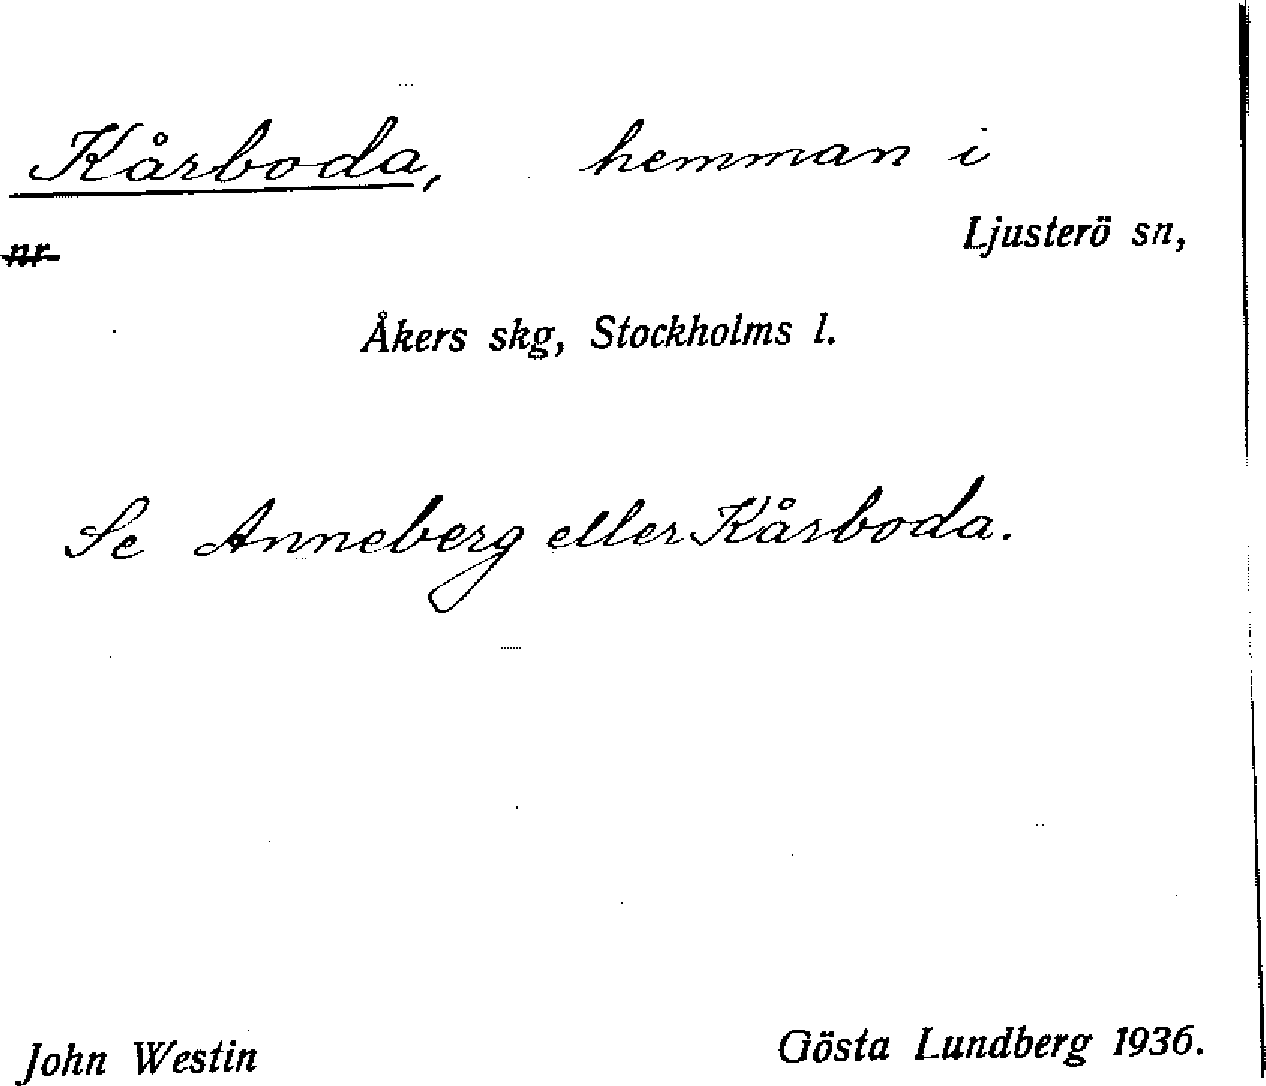 Kårboda, hemman i
Ljusterö sn,
nr
Åkers skg, Stockholms l.
Se Anneberg eller Kårboda.
John Westin
Gösta Lundberg 1936.